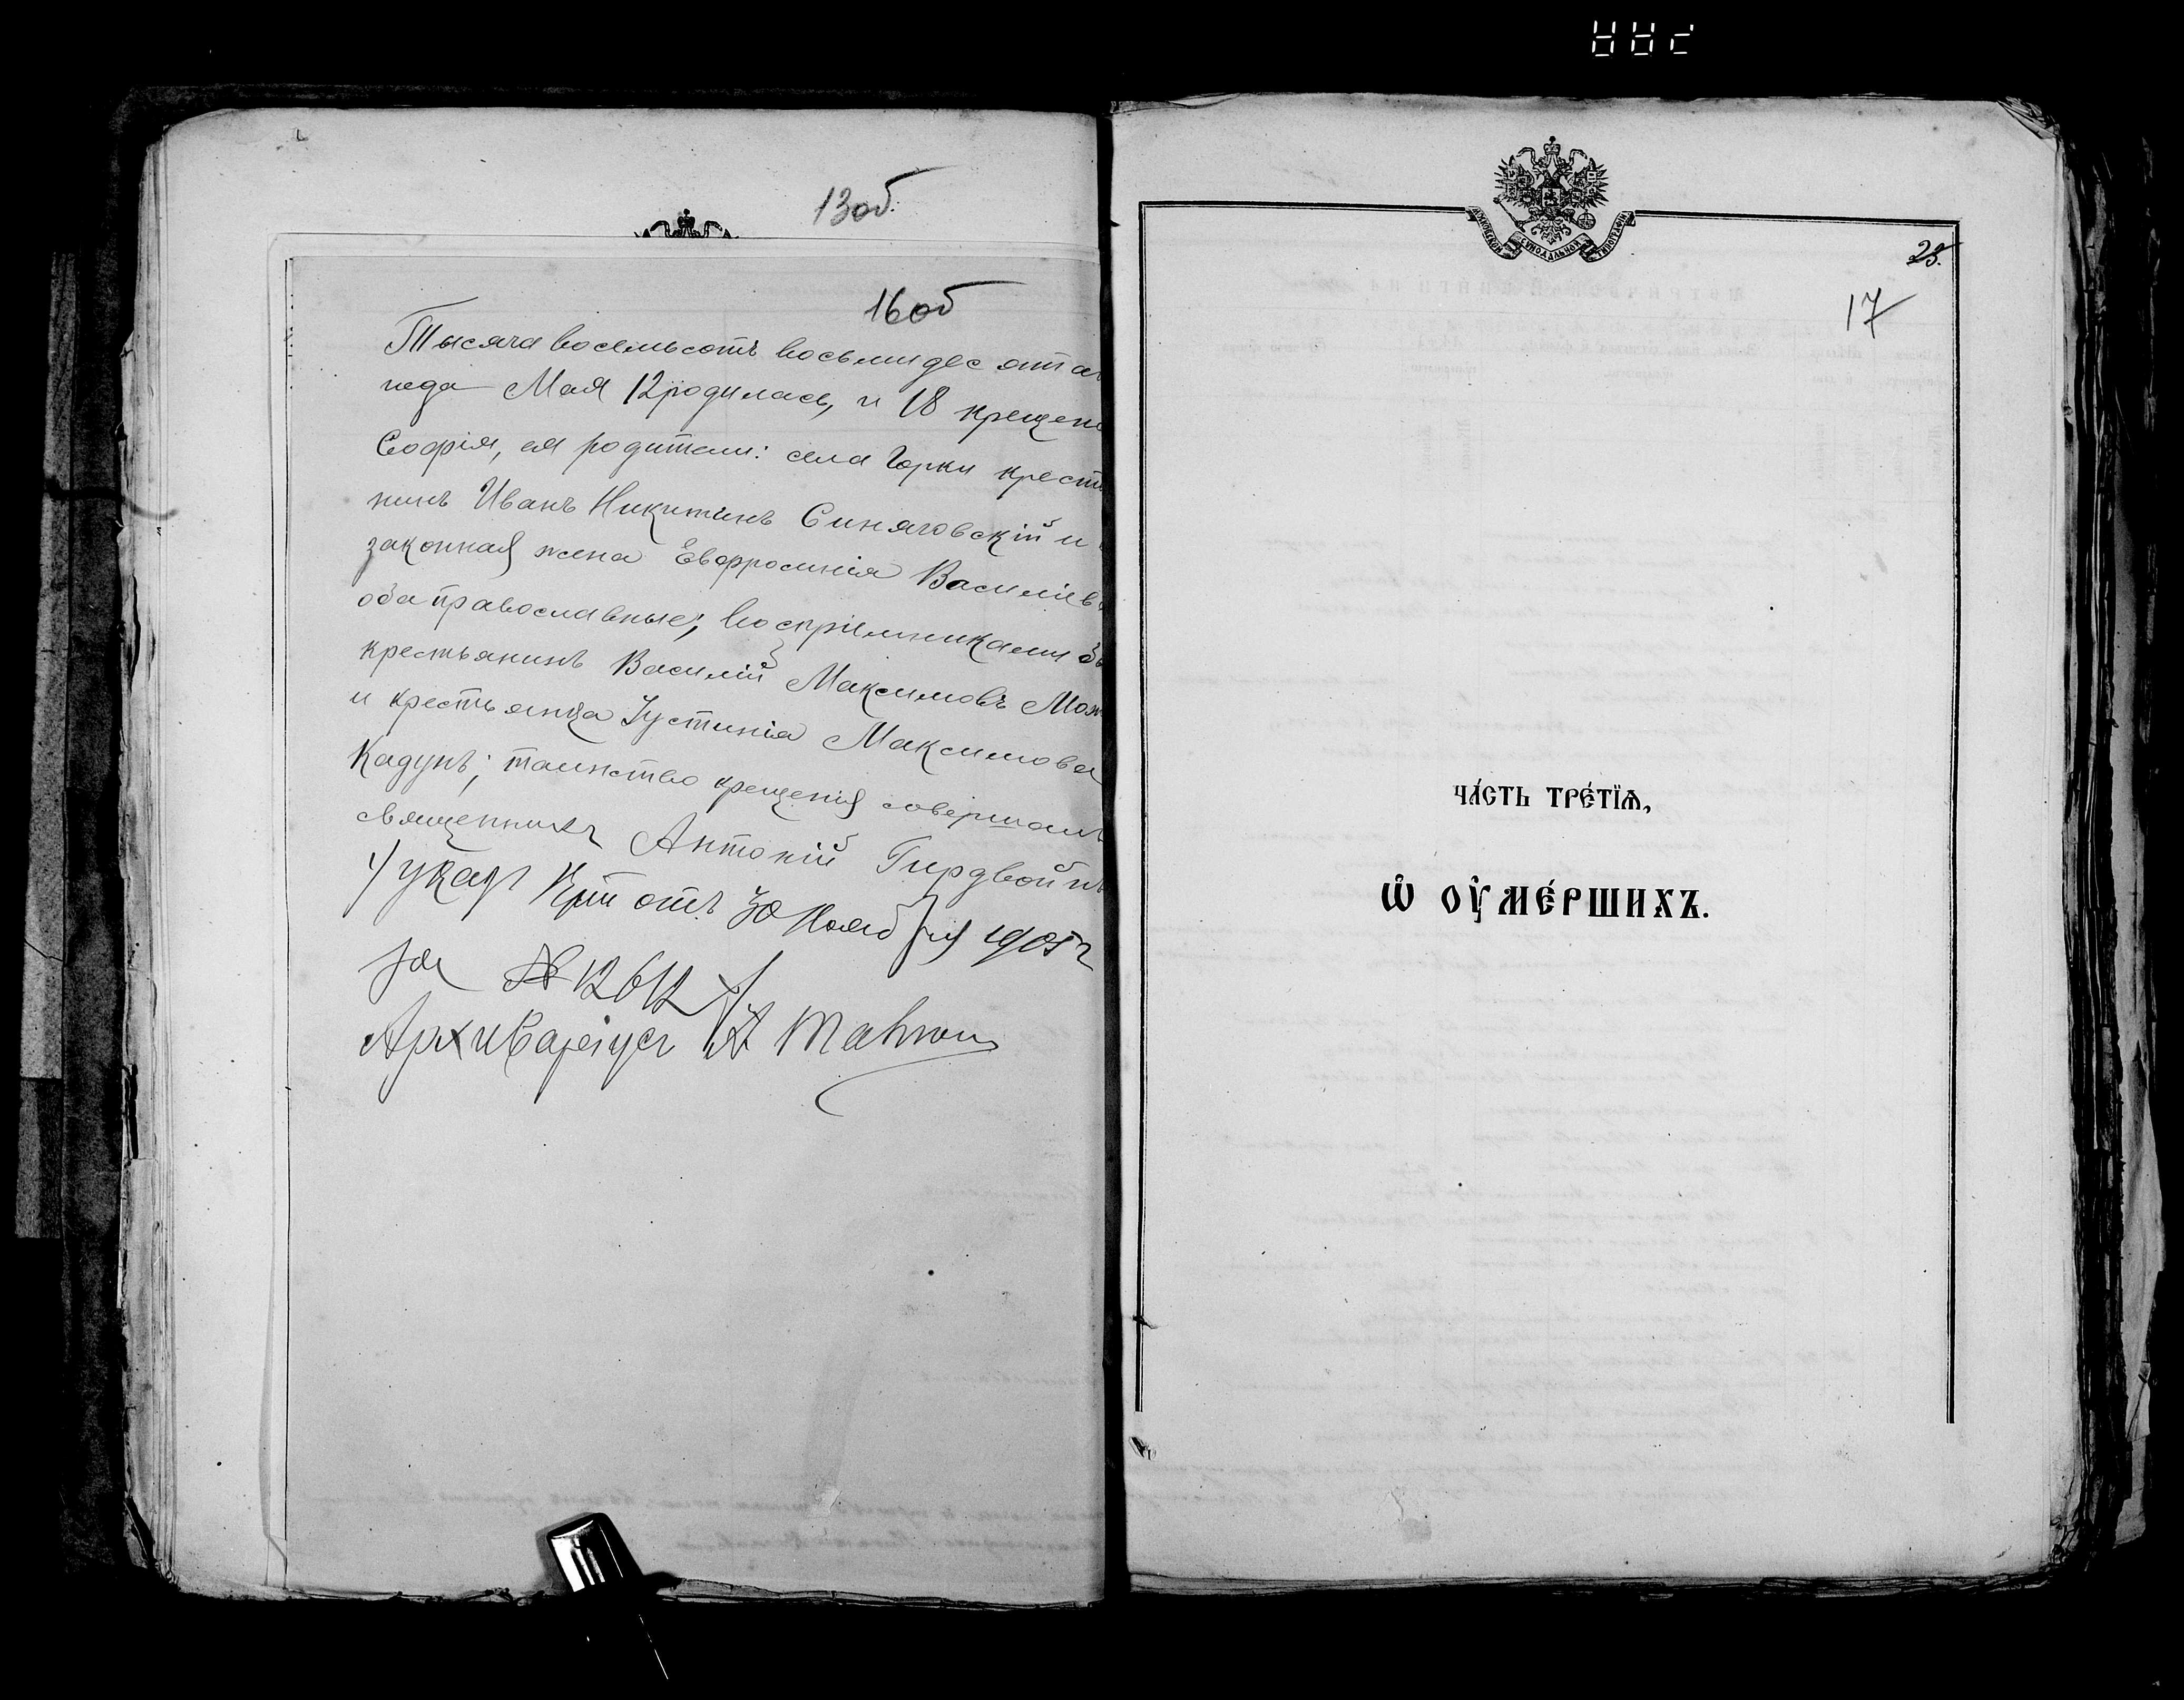 13об.
16об
Тысяча восемьсотъ восьмидесята
года Мая 12 родилась, и 18 крещена
Софія, ея родители: села Горки крест
нинъ Иванъ Никитинъ Синяговскій и
законная жена Евфросинія Василіев
оба православные; воспріемниками
крестьянинъ Василій Максимовъ Мож
и крестьянка Іустинія Максимова
Кадунъ; таинство крещенія совершалъ
священникъ Антоній Гирдвойнъ
указъ отъ 30 Ноября 1905 г
за № 12612
Архиваріусъ
МОСКОВСКОЙ СѴНОДАЛЬНОЙ ТИПОГРАФІИ
23.
17
ЧА́СТЬ ТРЕ́ТЇѦ,
Ѡ҆ ОУ҆МЕ́РШИХЪ.